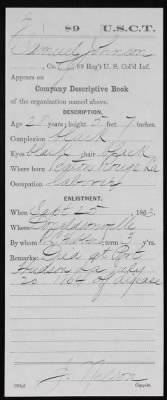 J | 89 | U.S.C.T.
Samuel Johnson
Co. , 89 Reg't U. S. Col'd Inf.
Appears on
Company Descriptive Book
of the organization named above.
DESCRIPTION.
Age years; height 5 feet 7 inches.
Complexion black
Eyes black; hair black
Where born Baton Rouge La
Occupation laborer
ENLISTMENT.
When Sept 25, 1863.
Where Donaldsonville
By whom ; term 3 y'rs.
Remarks: Died at Port
Hudson La July
20 1864 of disease
J. Nelson